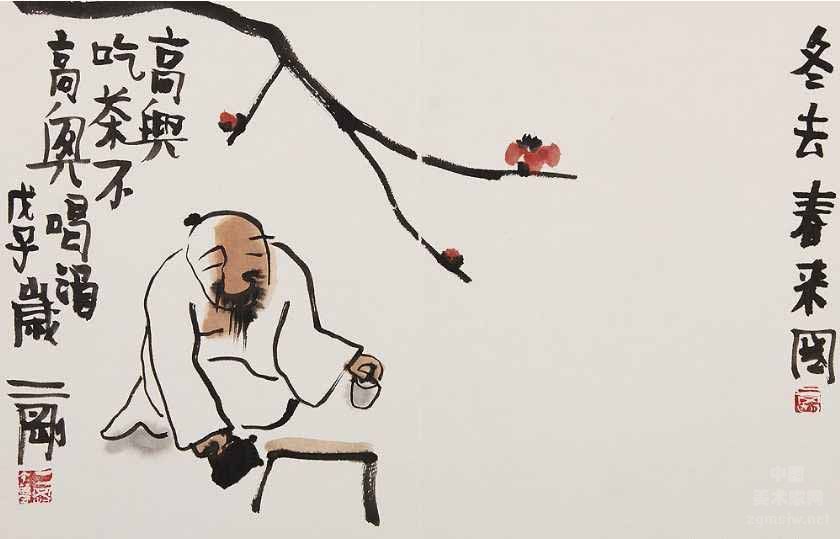 冬去春来圖
高興
吃茶不
高興喝酒
戊子歲
二剛
中国
美术家网
zgmsjw.net